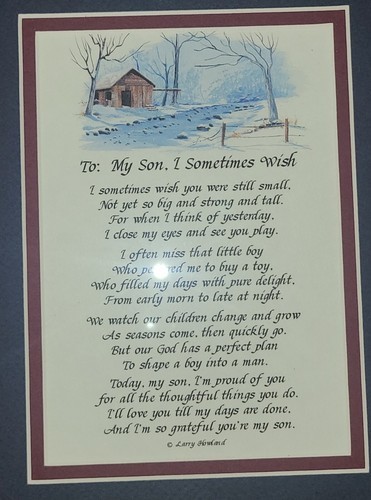 To: My Son, I Sometimes Wish
I sometimes wish you were still small,
Not yet so big and strong and tall.
For when I think of yesterday,
I close my eyes and see you play.
I often miss that little boy
Who me to buy a toy,
Who filled my days with pure delight,
From early morn to late at night.
We watch our children change and grow
As seasons come, then quickly go.
But our God has a perfect plan
To shape a boy into a man.
Today, my son, I'm proud of you
for all the thoughtful things you do.
I'll love you till my days are done,
And I'm so grateful you're my son.
© Larry Howland